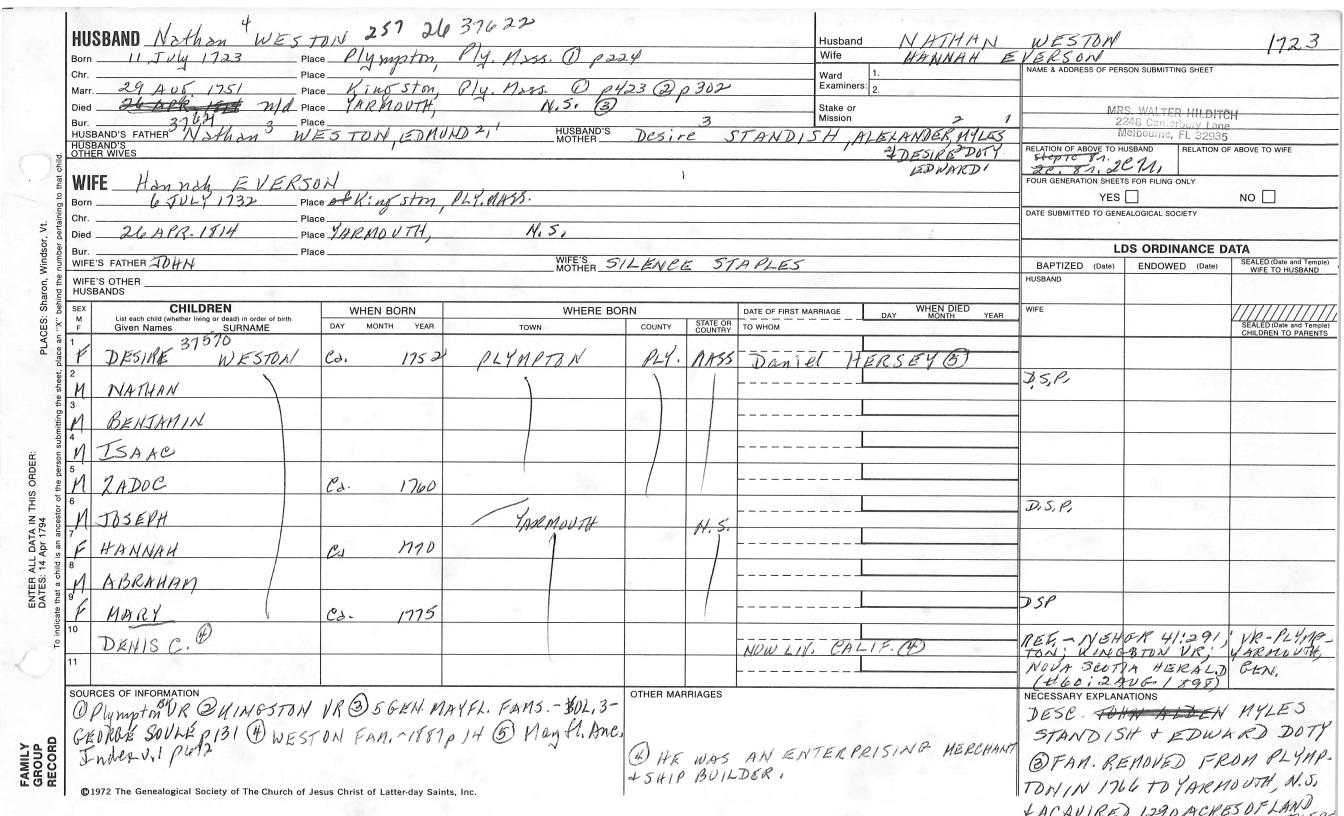 HUSBAND Nathan 4 WESTON 257 26 37622
Born 11 July 1723 Place Plympton, Ply. Mass. ① p224
Chr. Place
Marr. 29 AUG. 1751 Place Kingston, Ply. Mass. ① p423 ② p302
Died 26 APR. n/d Place YARMOUTH, N.S. ③
Bur. Place
HUSBAND'S FATHER Nathan 3 WESTON, EDMUND 2, 1 HUSBAND'S MOTHER Desire 3 STANDISH, ALEXANDER 2, MYLES 1
HUSBAND'S OTHER WIVES
& DESIRE 2 DOTY
EDWARD 1
Husband NATHAN WESTON 1723
Wife HANNAH EVERSON
Ward Examiners: 1. 2.
Stake or Mission
NAME & ADDRESS OF PERSON SUBMITTING SHEET
MRS. WALTER HILDITCH
Melbourne, FL 32935
RELATION OF ABOVE TO HUSBAND
RELATION OF ABOVE TO WIFE
FOUR GENERATION SHEETS FOR FILING ONLY
YES NO
DATE SUBMITTED TO GENEALOGICAL SOCIETY
WIFE Hannah EVERSON
Born 6 JULY 1732 Place of Kingston, PLY. MASS.
Chr. Place
Died 26 APR. 1814 Place YARMOUTH, N.S.
Bur. Place
WIFE'S FATHER JOHN WIFE'S MOTHER SILENCE STAPLES
WIFE'S OTHER HUSBANDS
LDS ORDINANCE DATA
BAPTIZED (Date) ENDOWED (Date) SEALED (Date and Temple) WIFE TO HUSBAND
HUSBAND
WIFE
SEALED (Date and Temple) CHILDREN TO PARENTS
SEX M F
CHILDREN
List each child (whether living or dead) in order of birth
Given Names SURNAME
WHEN BORN DAY MONTH YEAR
WHERE BORN TOWN COUNTY STATE OR COUNTRY
DATE OF FIRST MARRIAGE TO WHOM
WHEN DIED DAY MONTH YEAR
37570
1 F DESIRE WESTON Ca. 1752 PLYMPTON PLY. MASS Daniel HERSEY ⑤
2 M NATHAN D.S.P.
3 M BENJAMIN
4 M ISAAC
5 M ZADOC Ca. 1760
6 M JOSEPH YARMOUTH N.S. D.S.P.
7 F HANNAH Ca 1770
8 M ABRAHAM
9 F MARY Ca. 1775 DSP
10 DENIS C. ④ NOW LIV. CALIF. ④
11
REF. - NEHGR 41:291; VR-PLYMP-
TON; KINGSTON VR; YARMOUTH,
NOVA SCOTIA HERALD GEN.
(#60: 2 AUG 1898)
SOURCES OF INFORMATION
① Plympton VR ② KINGSTON VR ③ 5 GEN. MAYFL. FAMS. - VOL. 3 -
GEORGE SOULE p131 ④ WESTON FAM. - 1887 p14 ⑤ Mayfl. Anc.
Index v.1 p612
OTHER MARRIAGES
④ HE WAS AN ENTERPRISING MERCHANT
& SHIP BUILDER.
NECESSARY EXPLANATIONS
DESC. JOHN ALDEN MYLES
STANDISH & EDWARD DOTY
③ FAM. REMOVED FROM PLYMP-
TON IN 1766 TO YARMOUTH, N.S.
& ACQUIRED 1290 ACRES OF LAND
©1972 The Genealogical Society of The Church of Jesus Christ of Latter-day Saints, Inc.
FAMILY GROUP RECORD
ENTER ALL DATA IN THIS ORDER:
DATES: 14 Apr 1794
PLACES: Sharon, Windsor, Vt.
To indicate that a child is an ancestor of the person submitting the sheet, place an "X" behind the number pertaining to that child.